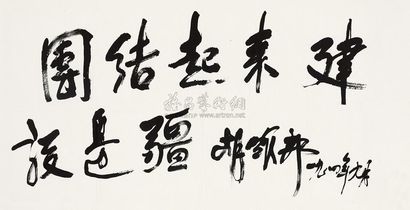 團结起来建
設邊疆 胡耀邦 一九八四年九月
雅昌藝術網
www.artron.net